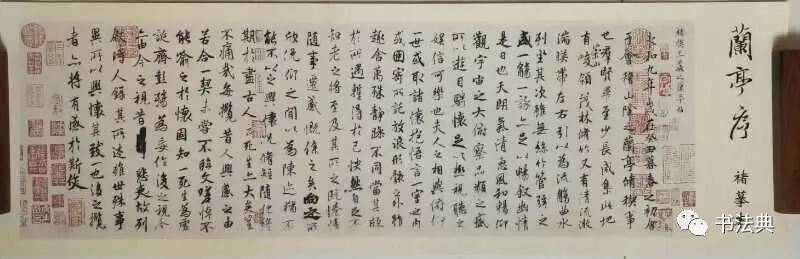 蘭亭序
褚摹
褚模王羲之蘭亭帖
永和九年歲在癸丑暮春之初會
于會稽山陰之蘭亭脩稧事
也羣賢畢至少長咸集此地
有崇山峻領茂林脩竹又有清流激
湍暎帶左右引以為流觴曲水
列坐其次雖無絲竹管弦之
盛一觴一詠亦足以暢敘幽情
是日也天朗氣清惠風和暢仰
觀宇宙之大俯察品類之盛
所以遊目騁懷足以極視聽之
娛信可樂也夫人之相與俯仰
一世或取諸懷抱悟言一室之內
或因寄所託放浪形骸之外雖
趣舍萬殊靜躁不同當其欣
於所遇暫得於己快然自足不
知老之將至及其所之既惓情
隨事遷感慨係之矣向之所
欣俛仰之間以為陳迹猶不
能不以之興懷況脩短隨化終
期於盡古人云死生亦大矣豈
不痛哉每攬昔人興感之由
若合一契未嘗不臨文嗟悼不
能喻之於懷固知一死生為虛
誕齊彭殤為妄作後之視今
亦由今之視昔悲夫故列
敘時人錄其所述雖世殊事
異所以興懷其致一也後之攬
者亦將有感於斯文
书法典